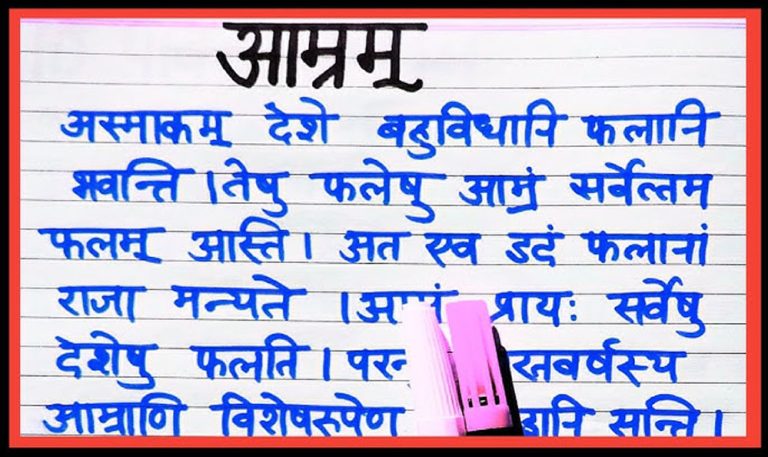 आम्रम्
अस्माकम् देशे बहुविधानि फलानि
भवन्ति । तेषु फलेषु आम्रं सर्वेत्तम
फलम् आस्ति । अत एव इदं फलानां
राजा मन्यते । प्रायः सर्वेषु
देशेषु फलति ।
आम्राणि विशेषरुपेण सन्ति ।